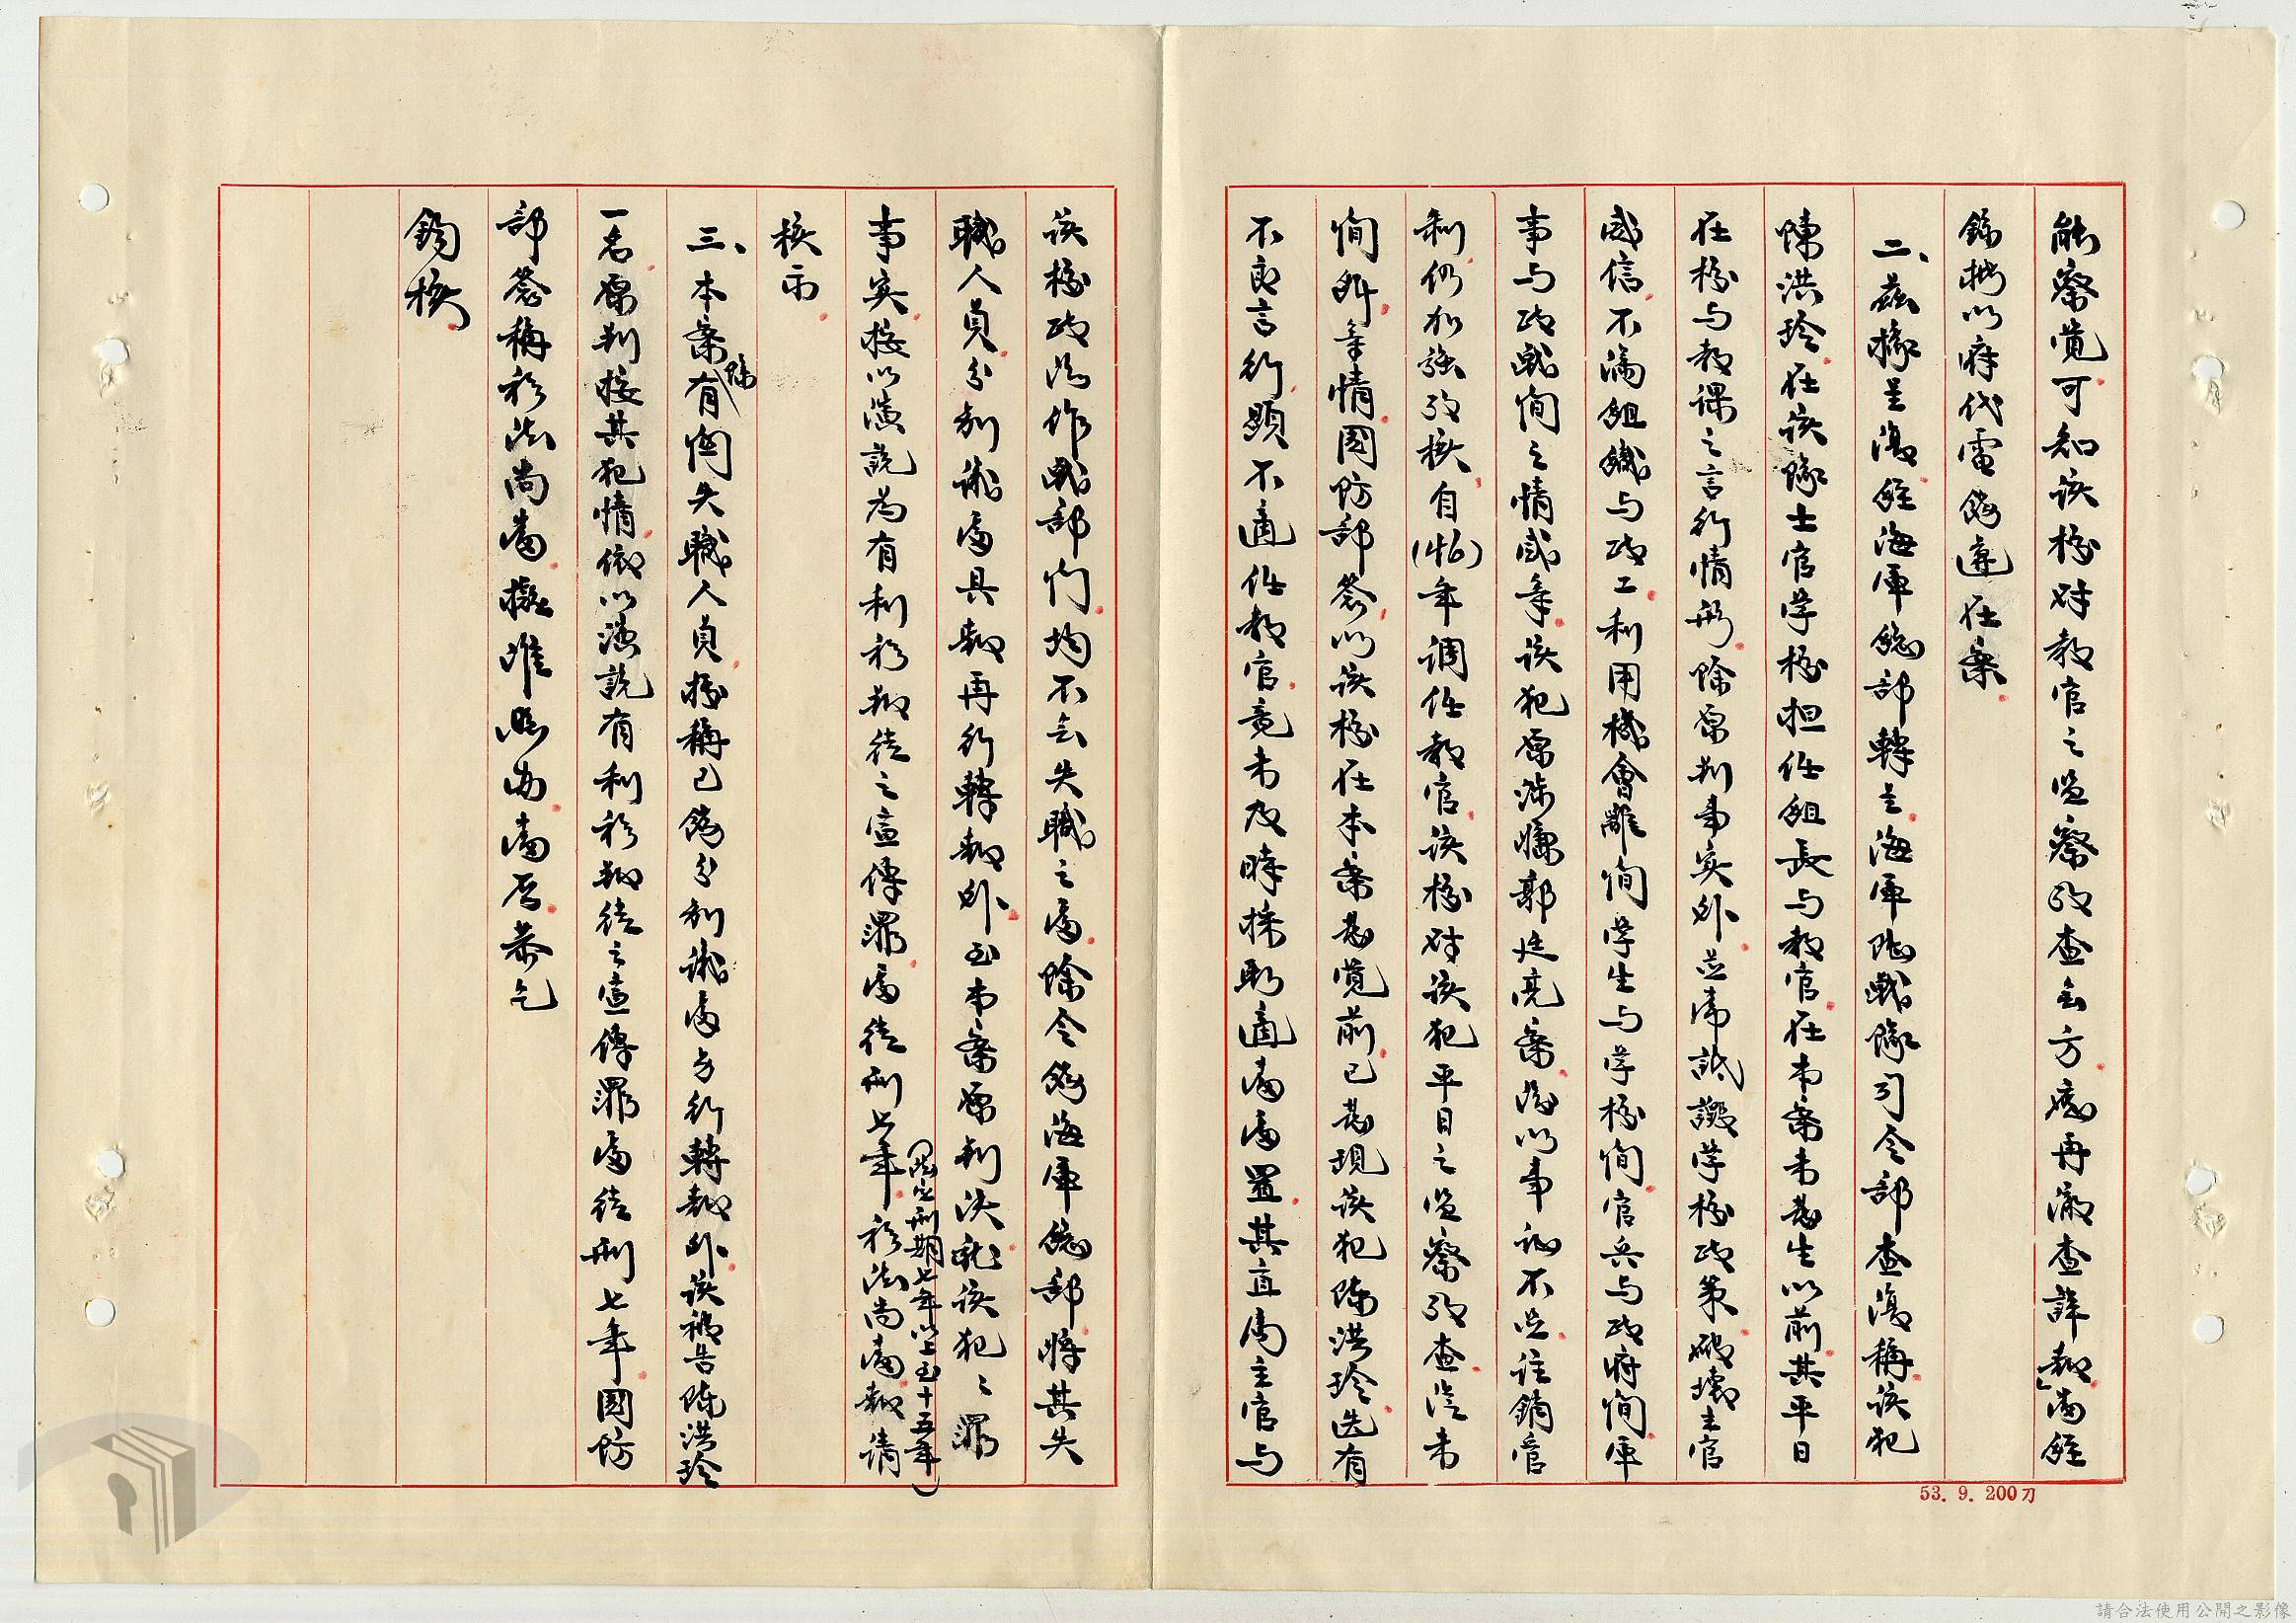 能察覺可知該校对教官之監察考查無方應再澈查詳報」當經
錄批以府代電飭遵在案
二、茲據呈復經海軍總部轉呈海軍陸戰隊司令部查復稱該犯
陳洪玲在該隊士官学校担任組長与教官在本案未發生以前其平日
在校与教課之言行情形除原判事实外並常詆譭学校政策破壞主官
威信不滿組織与政工利用機會離間学生与学校間官兵与政府間軍
事与政戰間之情感等該犯原涉嫌郭廷亮案後以事証不足註銷管
制仍加強考核自(46)年調任教官該校对該犯平日之監察考查從未
間斷等情國防部簽以該校在本案發覺前已發現該犯陳洪玲迭有
不良言行顯不適任教官竟未及時採取適當處置其直屬主官与
該校政治作戰部門均不無失職之處除令飭海軍總部將其失
職人員分別議處具報再行轉報外至本案原判決就該犯之罪
事实按以演說為有利於叛徒之宣傳罪處徒刑七年(法定刑期七年以上至十五年)於法尚當報請
核示
三、本案有關失職人員據稱已飭分別議處另行轉報外該被告陳洪玲
一名原判按其犯情依以演說有利於叛徒之宣傳罪處徒刑七年國防
部簽稱於法尚當擬准照办當否恭乞
鈞核
53. 9. 200刀
請合法使用公開之影像